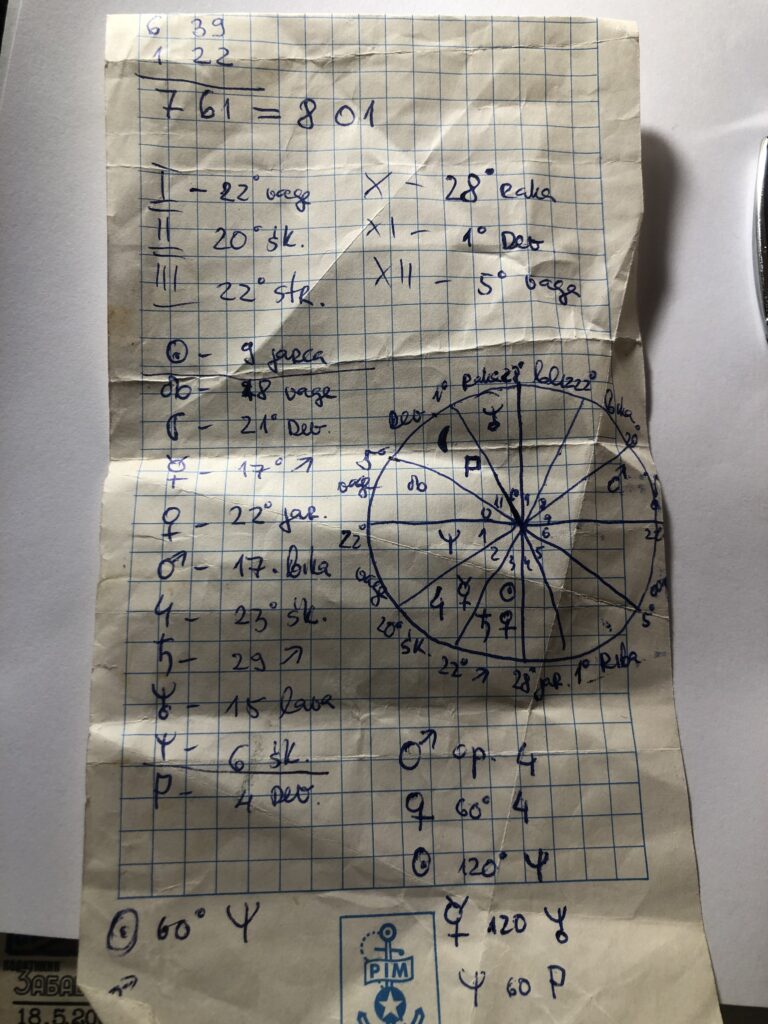 6 39
1 22
7 61 = 8 01
I - 22° vage X - 28° Raka
II 20° šk. XI - 1° Dev
III 22° str. XII - 5° vage
☉ - 9 jarca
☊ - 18 vage
☾ - 21° Dev.
☿ - 17° ↗
♀ - 22° jar.
♂ - 17. bika
♃ - 23° šk.
♄ - 29 ↗
♅ - 15 lava
♆ - 6 šk.
P - 4 Dev.
1° Raka 28° Blizz 22°
Dev. Bika 20°
5° vage
☊ P ♅ ♂
11 10 9 8
12 7
22° 1 6 22
2 3 4 5
♆ ♃ ☿ ♄ ☉ ♀
vage 5°
20° šk.
22° ↗ 28° jar. 1° Riba
♂ op. ♃
♀ 60° ♃
☉ 120° ♆
☾ 60° ♆ ☿ 120 ♅
♆ 60 P
PIM
ЗАБАВ
18.5.20